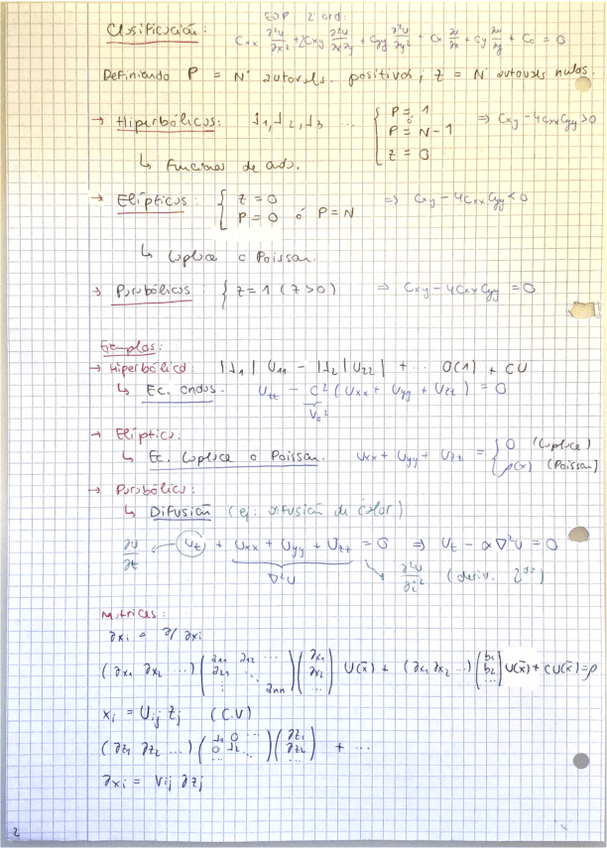 EDP 2º ord:
Clasificación: Cxx ∂²u/∂x² + 2Cxy ∂²u/∂x∂y + Cyy ∂²u/∂y² + Cx ∂u/∂x + Cy ∂u/∂y + C0 = 0
Definiendo P = Nº autovals. positivos; z = Nº autovals nulos.
→ Hiperbólicos: λ1, λ2, λ3 ... { P = 1 ó P = N-1 z = 0 ⇒ Cxy - 4CxxCyy > 0
↳ Funciones de onda.
→ Elípticos: { z = 0 P = 0 ó P = N ⇒ Cxy - 4CxxCyy < 0
↳ Laplace o Poisson.
→ Parabólicos: { z = 1 (z > 0) ⇒ Cxy - 4CxxCyy = 0
Ejemplos:
→ Hiperbólico: |λ1| U11 - |λ2| U22| + ... O(1) + CU
↳ Ec. ondas. Utt - C² (Uxx + Uyy + Uzz) = 0
V0²
→ Elíptico:
↳ Ec. Laplace o Poisson. Uxx + Uyy + Uzz = { 0 (Laplace) ρ(x) (Poisson)
→ Parabólico:
↳ Difusión (ej: difusión de calor)
∂U/∂t ← Ut + Uxx + Uyy + Uzz = 0 ⇒ Ut - α∇²U = 0
∇²U ∂²U/∂i² (deriv. 2ªs)
Matrices:
∂xi = ∂/∂xi
(∂x1 ∂x2 ...) (a11 a12 ... a21 ... ann) (∂x1 ∂x2 ...) U(x̄) + (∂x1 ∂x2 ...) (b1 b2 ...) U(x̄) + CU(x̄) = ρ
xi = Uij zj (C.V)
(∂z1 ∂z2 ...) (λ1 0 ... 0 λ2 ...) (∂z1 ∂z2 ...) + ...
∂xi = Vij ∂zj
2